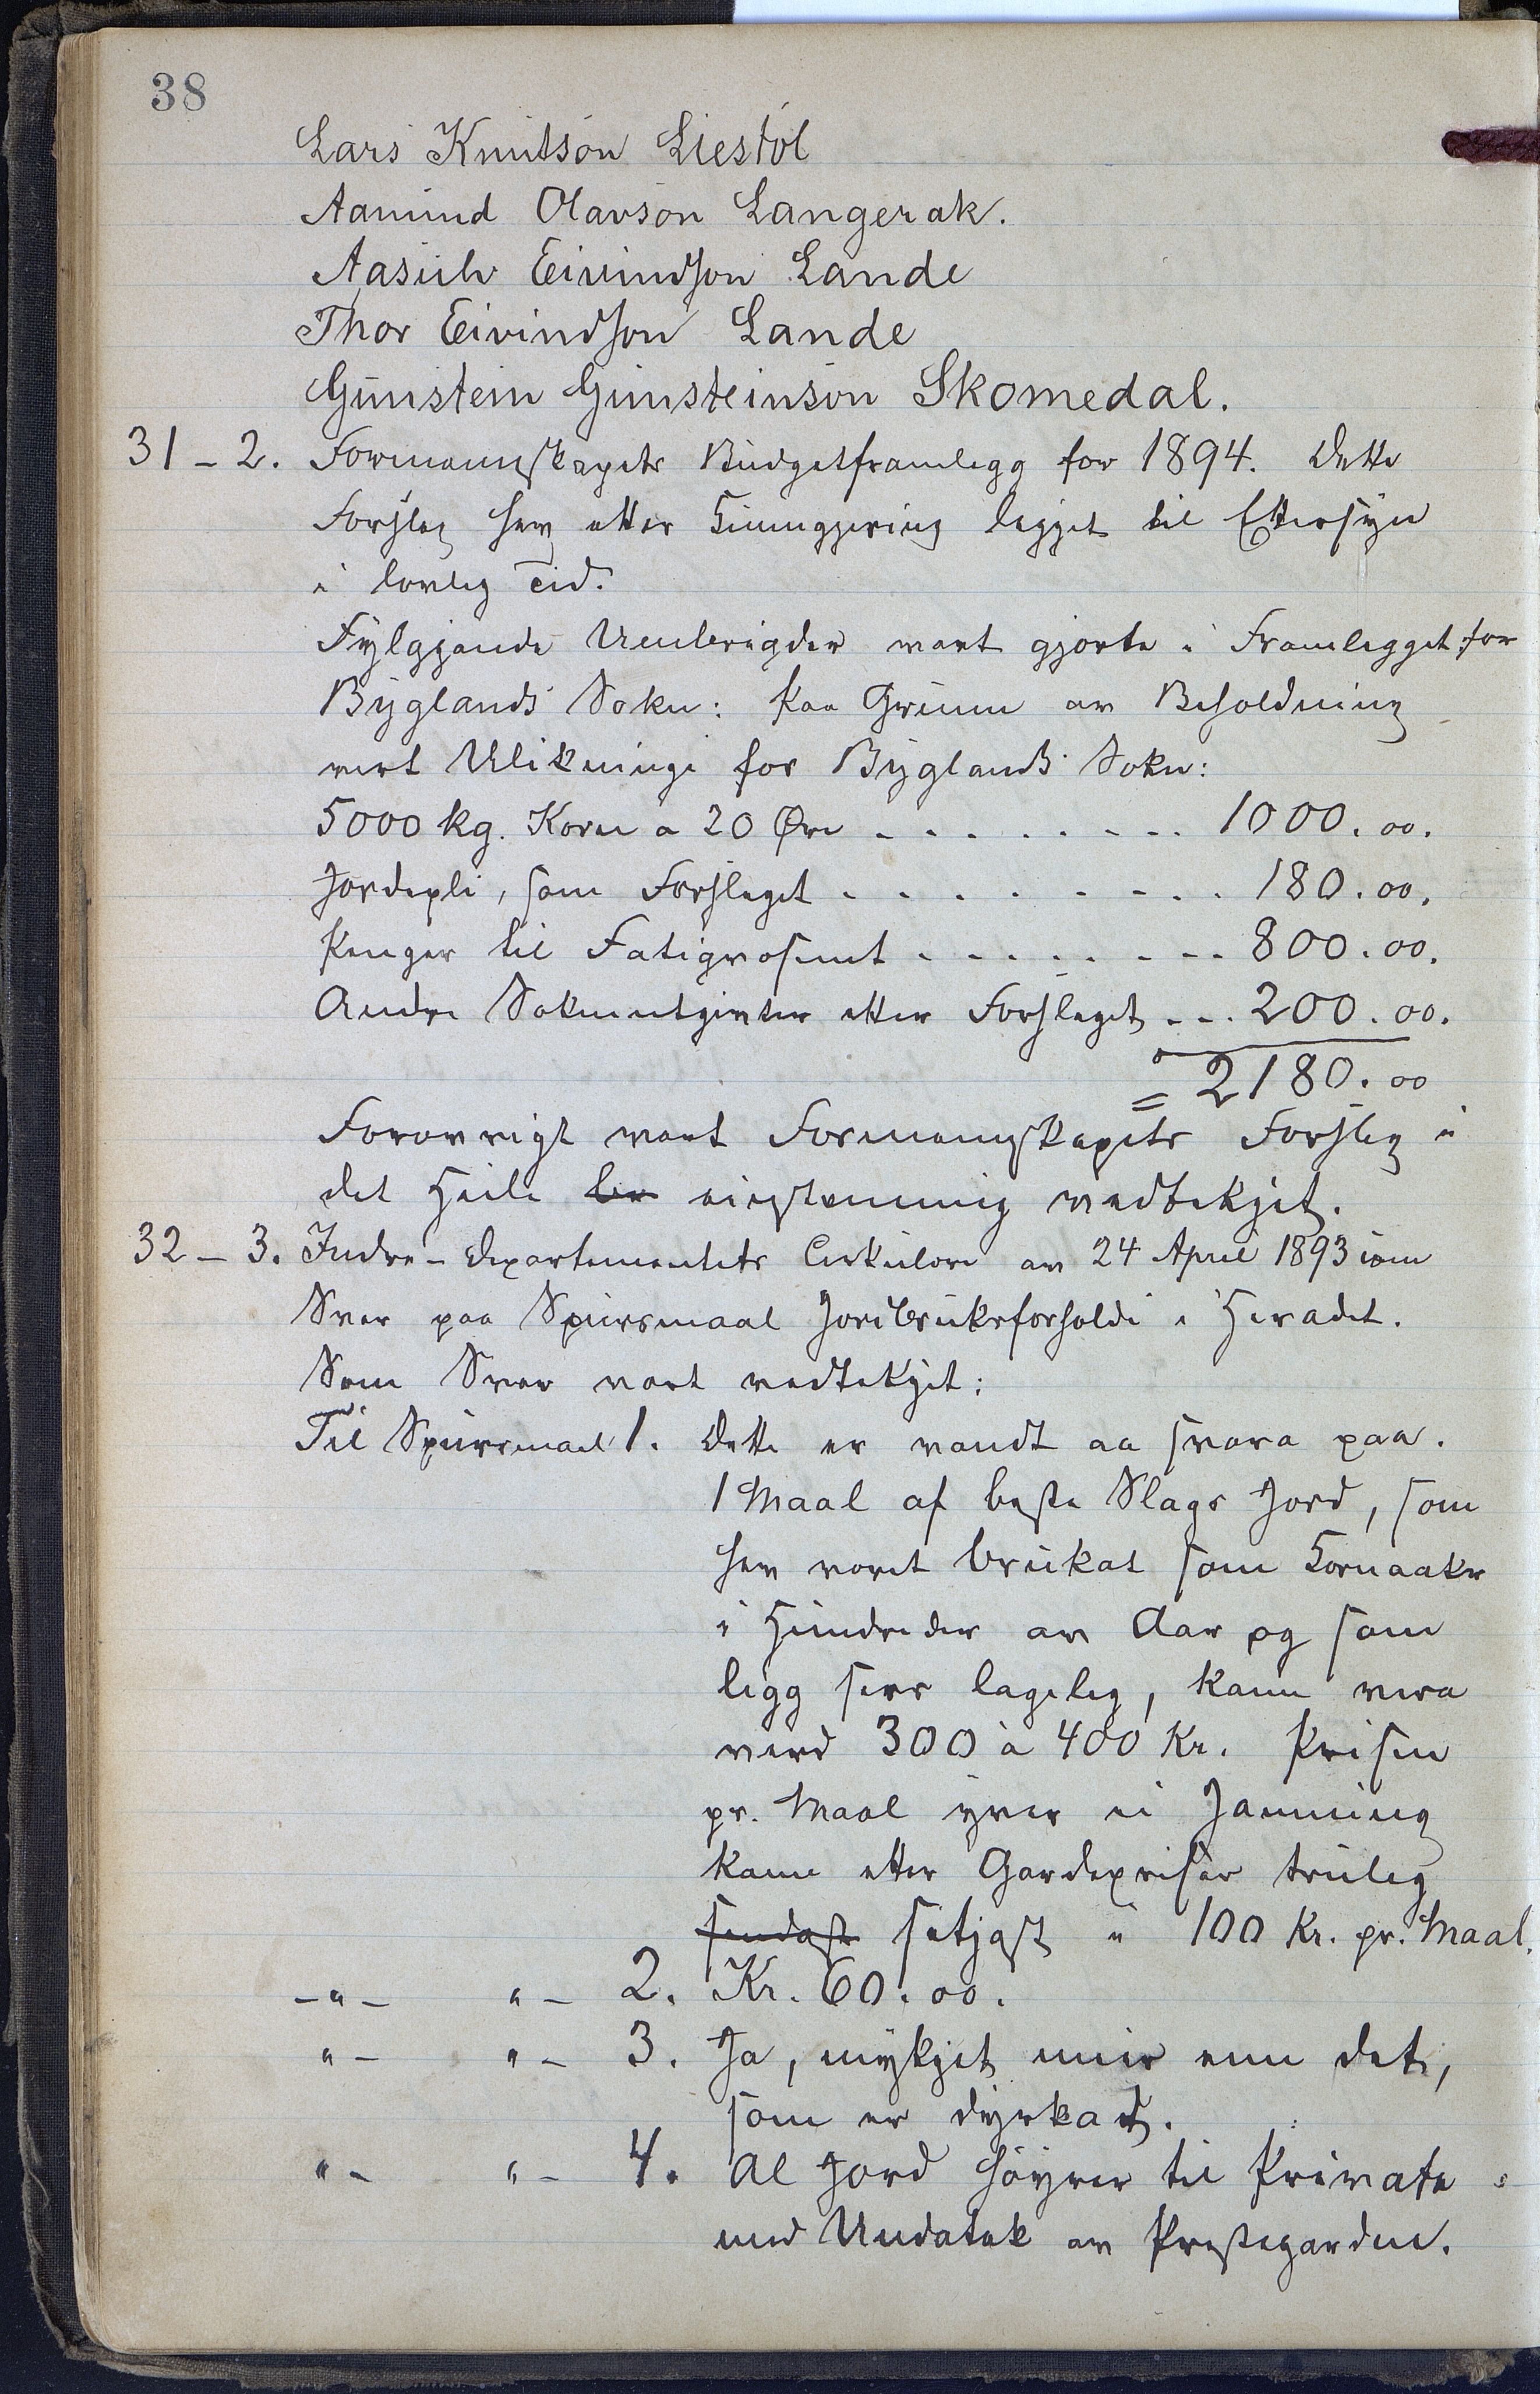 38
Lars Knutson Liestöl
Aamund Olavson Langerak.
Aasulv Eivindson Lande
Thor Eivindson Lande
Gunstein Gunsteinson Skomedal.
31-2. Formannskapets Budgetframlegg for 1894. Dette
Forslag hev etter Kunngjering legget til Ettersyn
i lovleg Tid.
Fylgjande Umbrigder vart gjorte i Framlegget for
Byglands Sokn: Paa Grunn av Behaldning
vert Utlikninge for Byglands Sokn:
5000 kg. Korn a 20 Øre - - - - - - - - 1000.00.
Jordepli, som Forslaget - - - - - - - - - 180.00.
Penger til Fatigvesenet - - - - - - - - 800.00.
Andre Soknentgivter etter Forslaget - - - 200.00.
= 2180.00
Forøvrigt vart Formannskapets Forslag i
det Heile ble einstemmig vedtekjet.
32-3. Indre-Departementets Cirkulære av 24 April 1893 um
Svar paa Spursmaal Jordbruksforholdi i Heradet.
Som Svar vart vedtekjet:
Til Spursmaal 1. Dette er vandt aa svara paa.
1 Maal af beste Slags Jord, som
hev voret brukat som Kornaaker
i Hundreder av Aar og som
ligg sers lageleg, kann vera
verd 300 à 400 Kr. Prisen
pr. Maal yver ei Jamning
kann etter Gardeprisar truleg
setjast i 100 Kr. pr. Maal.
-"- "- 2. Kr. 60.00.
"- "- 3. Ja, mykjet meir enn det,
som er dyrkad.
"- "- 4. Al Jord høyrer til Private
med Undatak av Prestegarden.